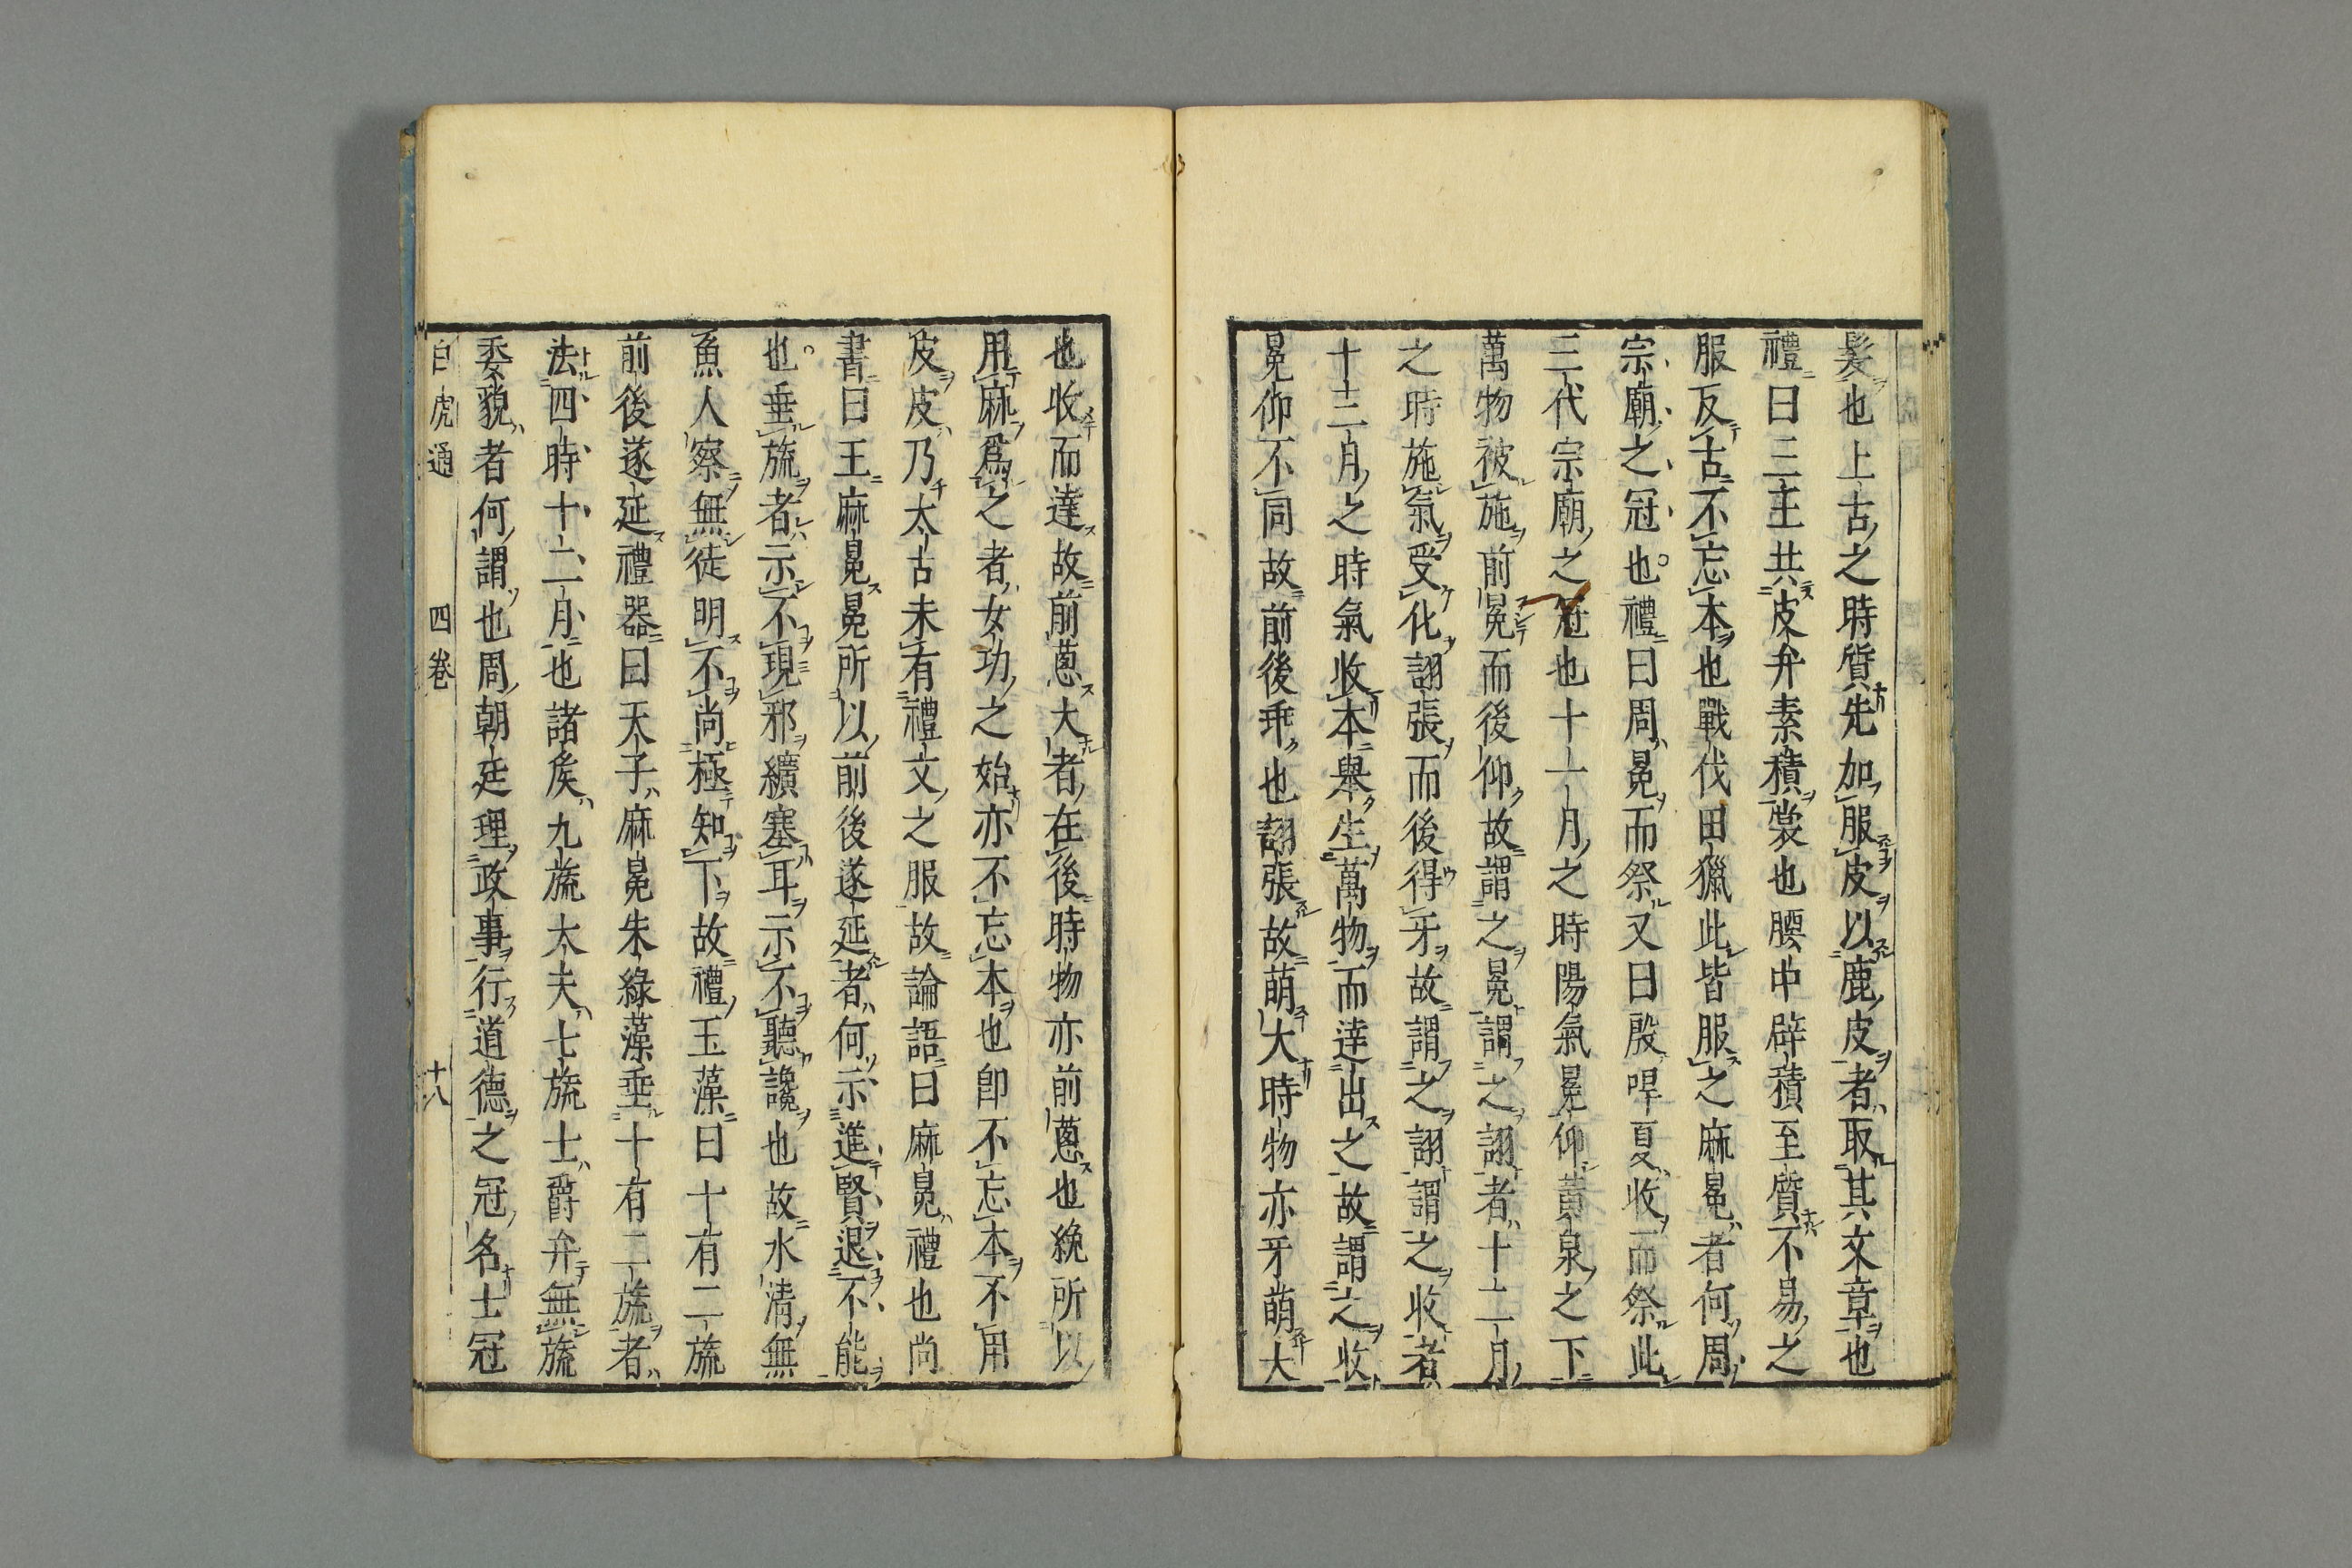 髮也上古之時質先加服皮以鹿皮者取其文章也
禮曰三王共皮弁素積裳也腰中辟積至質不易之
服反古不忘本也戰伐田獵此皆服之麻冕者何周
宗廟之冠也禮曰周冕而祭又曰殷哻夏收而祭此
三代宗廟之冠也十一月之時陽氣冕仰黃泉之下
萬物被施前冕而後仰故謂之冕謂之詡者十二月
之時施氣受化詡張而後得牙故謂之詡謂之收者
十三月之時氣收本舉生萬物而達出之故謂之收
冕仰不同故前後乖也詡張故萌大時物亦牙萌大
也收而達故前蔥大者在後時物亦前蔥也綩所以
用麻爲之者女功之始亦不忘本也卽不忘本不用
皮皮乃太古未有禮文之服故論語曰麻冕禮也尚
書曰王麻冕冕所以前後遂延者何示進賢退不能
也垂旒者示不現邪纊塞耳示不聽讒也故水清無
魚人察無徒明不尚極知下故禮玉藻曰十有二旒
前後遂延禮器曰天子麻冕朱綠藻垂十有二旒者
法四時十二月也諸侯九旒大夫七旒士爵弁無旒
委貌者何謂也周朝廷理政事行道德之冠名士冠
白虎通 四卷 十八